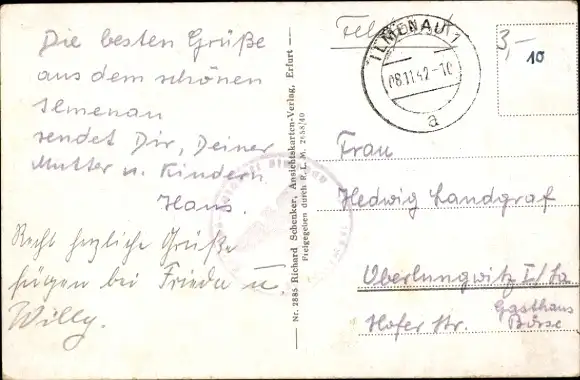 Die besten Grüße
aus dem schönen
Ilmenau
sendet Dir, Deiner
Mutter u. Kindern
Hans.
Recht herzliche Grüße
fügen bei Frieda u.
Willy.
Nr. 2885 Richard Schenker, Ansichtskarten-Verlag, Erfurt
Freigegeben durch R.L.M. 2858/40
ILMENAU
08.11.42-10
a
3,-
10
Frau
Hedwig Landgraf
Oberlungwitz I/Sa
Hofer Str. Gasthaus
Börse